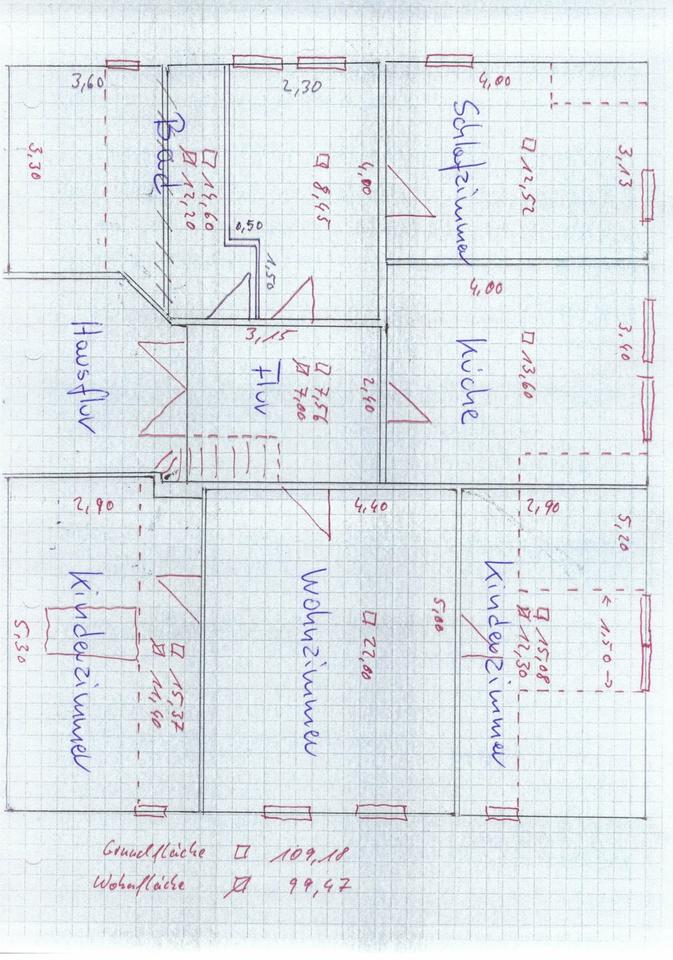 3,60
3,30
Bad
□ 14,60
⌧ 12,20
2,30
□ 8,45
4,00
0,50
1,50
4,00
Schlafzimmer
□ 12,52
3,13
Hausflur
3,15
Flur
□ 7,56
⌧ 7,00
2,40
4,00
Küche
□ 13,60
3,40
2,90
Kinderzimmer
5,30
□ 15,37
⌧ 11,40
4,40
Wohnzimmer
□ 22,00
5,00
2,90
5,20
Kinderzimmer
□ 15,08
⌧ 12,30
← 1,50 →
Grundfläche □ 109,18
Wohnfläche ⌧ 99,47